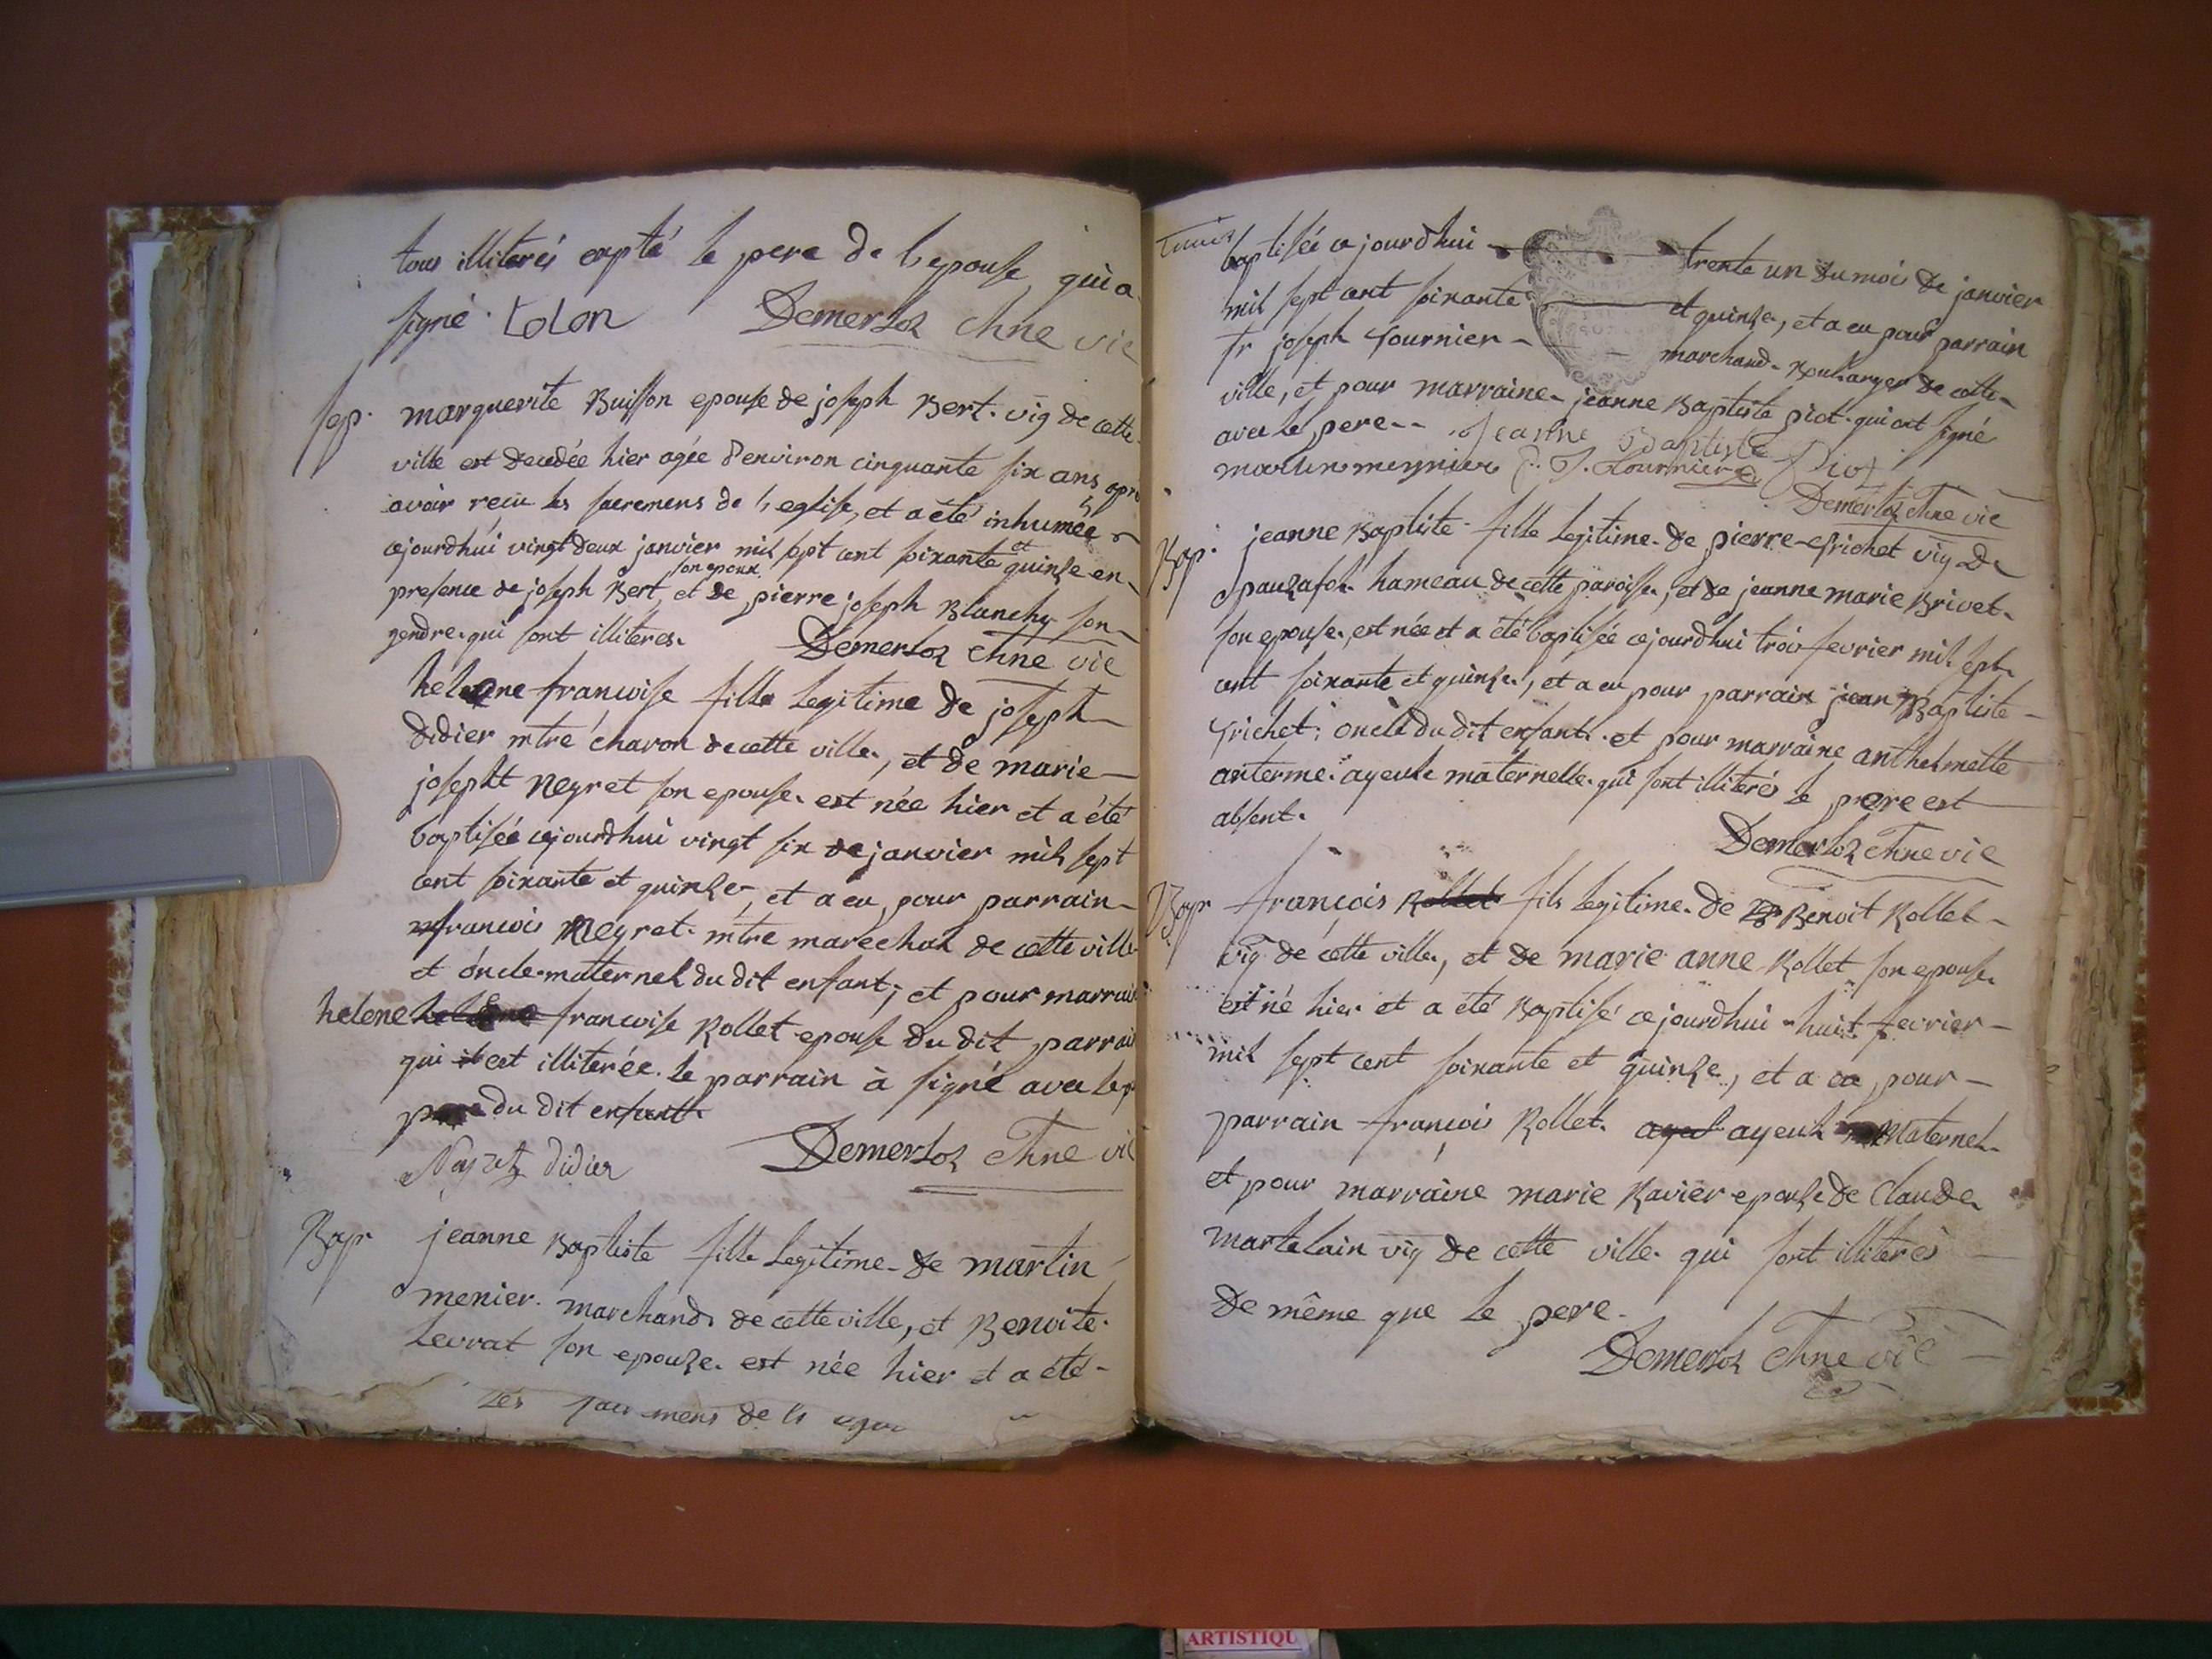 tous illiterés expté le pere de l'epouse qui a
signé. tolon Demerloz Chne vic
sep. marguerite Buisson epouse de joseph Bert. vig de cette
ville est decedée hier agée d'environ cinquante six ans apr
avoir reçu les sacremens de l'eglise, et a été inhumée
cejourdhui vingt deux janvier mil sept cent soixante et quinze en
presence de joseph Bert, son epoux et de pierre joseph Blanchy son
gendre qui sont illiteres. Demerloz Chne vic
helene francoise fille legitime de joseph
didier mtre charon de cette ville, et de marie
josepht neyret son epouse est née hier et a été
baptisée cejourdhui vingt six de janvier mil sept
cent soixante et quinze, et a eu pour parrain
francois Neyret mtre marechal de cette ville
et oncle maternel du dit enfant; et pour marrain
helene helene francoise Rollet epouse du dit parrai
qui est illiterée. le parrain à signé avec le
pere du dit enfant
Neyret didier Demerloz Chne vic
Bap jeanne Baptiste fille legitime de martin
menier marchand de cette ville, et Benoite
Levrat son epouze est née hier et a été
les mens de l
baptisée cejourdhui trente un du mois de janvier
mil sept cent soixante et quinze, et a eu pour parrain
Sr joseph fournier marchand Boulanger de cette
ville, et pour marraine jeanne Baptiste piot qui ont signé
avec le pere Jeanne Baptiste
martin meynier J. Fournier Piot
Demerloz Chne vic
Bap. jeanne Baptiste fille legitime de pierre frichet vig De
pauzafol hameau de cette paroisse, et de jeanne marie Brivet
son epouse, est née et a été baptisée cejourdhui trois fevrier mil sept
cent soixante et quinze, et a eu pour parrain jean Baptiste
frichet oncle du dit enfant et pour marraine anthelmette
anterme ayeule maternelle qui sont illiterés le pere est
absent.
Demerloz Chne vic
Bap francois Rollet fils legitime de Benoit Rollet
vig de cette ville, et de marie anne Rollet son epouse
est né hier et a été Baptisé cejourdhui huit fevrier
mil sept cent soixante et quinze, et a eu pour
parrain françois Rollet ayeul ayeul maternel
et pour marraine marie Ravier epouze de Claude
martelain vig de cette ville qui sont illiterés
De même que le pere.
Demerloz Chne vic
ARTISTIQU